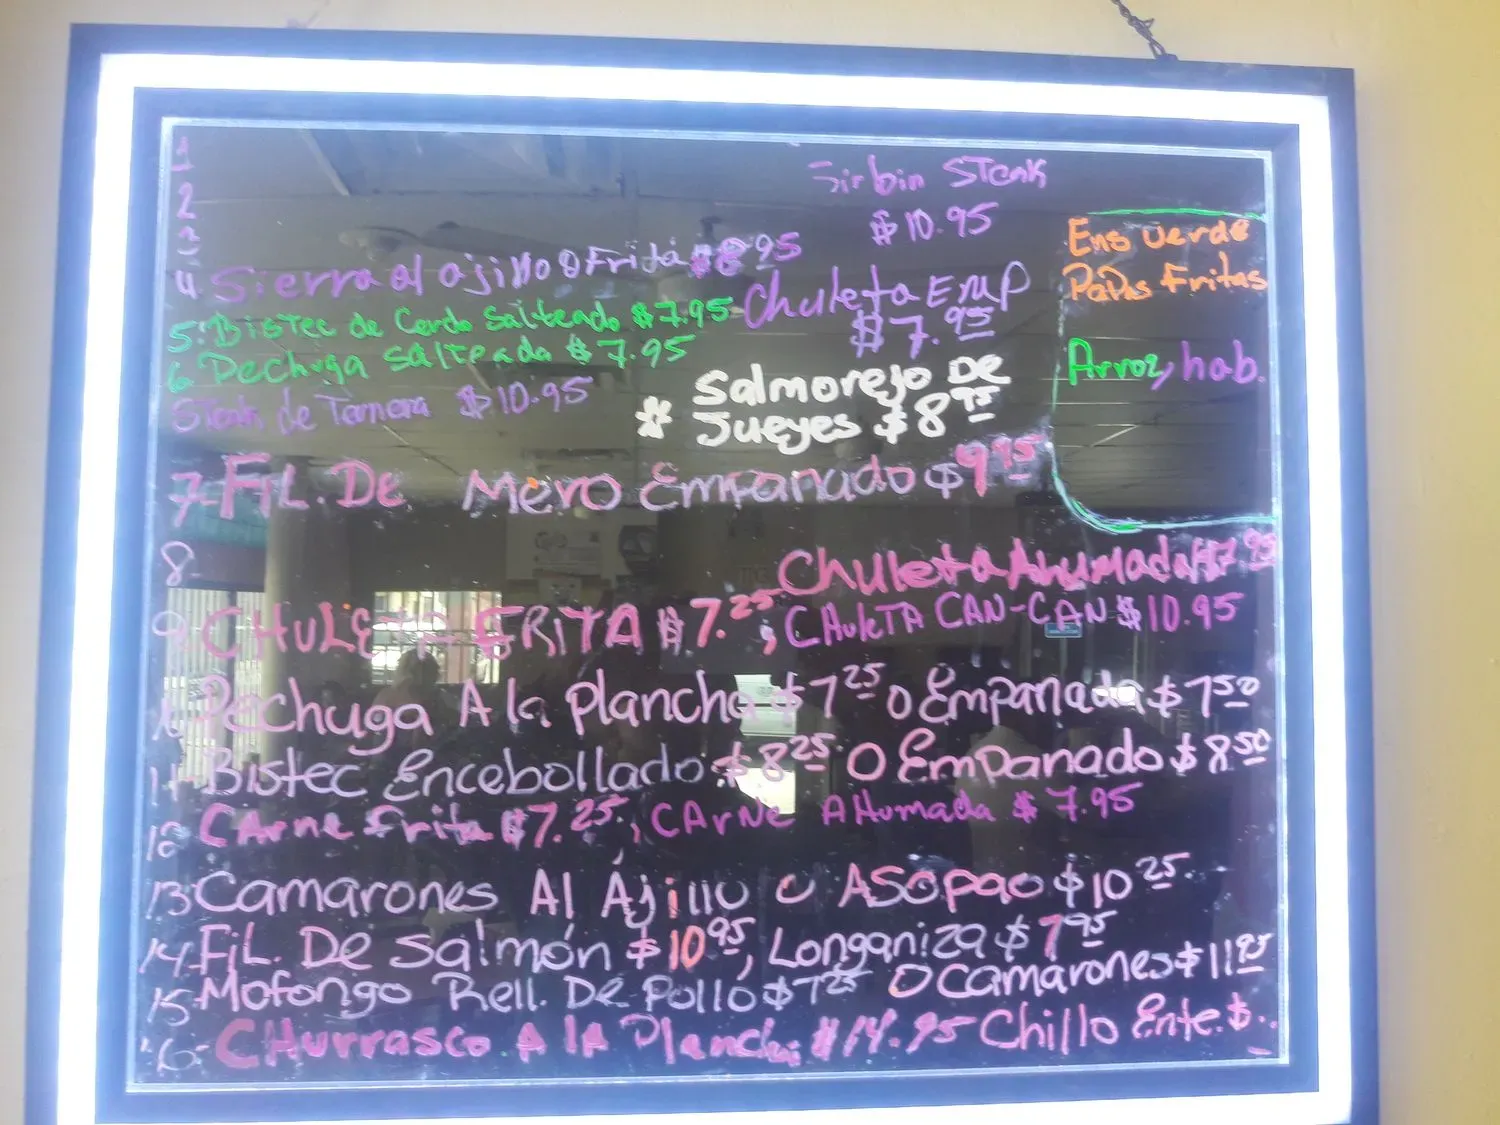 1
Sirbin Steak
2
$10.95
3
Ens verde
4 Sierra al ajillo o Frita $8.95
Papas Fritas
Chuleta Emp
$7.95
5. Bistec de Cerdo Salteado $7.95
6. Pechuga Salteada $7.95
Arroz, hab.
Steak de Ternera $10.95
* Salmorejo De
Jueyes $8.95
7. Fil. De Mero Empanado $9.95
8
Chuleta Ahumada $7.95
9. CHULETA FRITA $7.25, CHuleTA CAN-CAN $10.95
Pechuga A la Plancha $7.25 o Empanada $7.50
11. Bistec Encebollado $8.25 o Empanado $8.50
12 CArne Frita $7.25, CArNe AHumada $7.95
13. Camarones Al Ajillo o ASopao $10.25
14. FiL. De Salmón $10.95, Longaniza $7.95
15. Mofongo Rell. De Pollo $7.25 o Camarones $11.95
16. CHurrasco A lA Plancha $14.95 Chillo Ente. $..